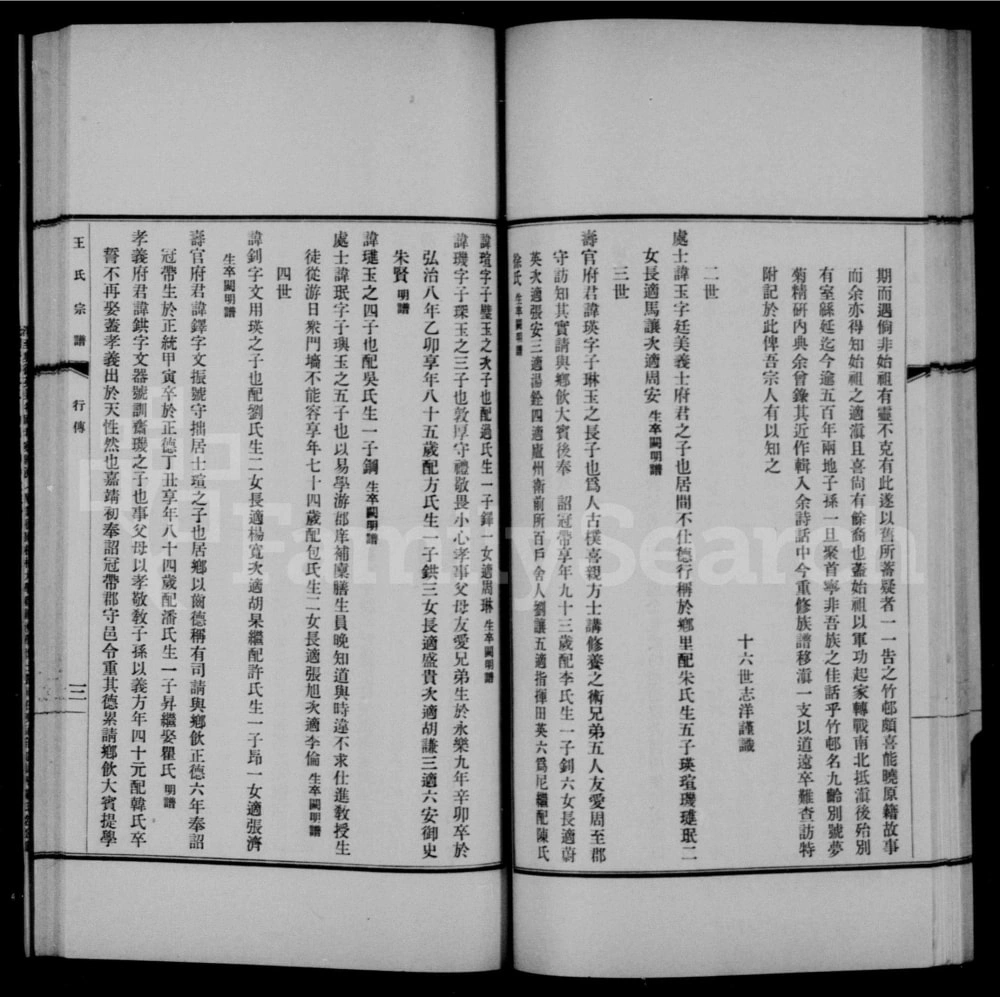 期而遇倘非始祖有靈不克有此遂以舊所蓄疑者一一告之竹邨頗喜能曉原籍故事
而余亦得知始祖之適滇且喜尙有餘裔也蓋始祖以軍功起家轉戰南北抵滇後殆別
有室緜延迄今逾五百年兩地子孫一旦聚首寧非吾族之佳話乎竹邨名九齡別號夢
菊精研內典余曾錄其近作輯入余詩話中今重修族譜移滇一支以道遠卒難查訪特
附記於此俾吾宗人有以知之
十六世志洋謹識
二世
處士諱玉字廷美義士府君之子也居間不仕德行稱於鄉里配朱氏生五子瑛瑄璣璉珉二
女長適馬讓次適周安 生卒闕明譜
三世
壽官府君諱瑛字子琳玉之長子也爲人古樸喜親方士講修養之術兄弟五人友愛周至郡
守訪知其實請與鄉飲大賓後奉 詔冠帶享年九十三歲配李氏生一子釗六女長適蔚
英次適張安三適湯銓四適廬州衛前所百戶舍人劉讓五適指揮田英六爲尼繼配陳氏
徐氏 生卒闕明譜
諱瑄字子璧玉之次子也配過氏生一子鐸一女適周琳 生卒闕明譜
諱璣字子琛玉之三子也敦厚守禮敬畏小心孝事父母友愛兄弟生於永樂九年辛卯卒於
弘治八年乙卯享年八十五歲配方氏生一子鉷三女長適盛貴次適胡謙三適六安御史
朱賢 明譜
諱璉玉之四子也配吳氏生一子鋼 生卒闕明譜
處士諱珉字子璵玉之五子也以易學游郡庠補廩膳生員晚知道與時違不求仕進教授生
徒從游日衆門墻不能容享年七十四歲配包氏生二女長適張旭次適李倫 生卒闕明譜
四世
諱釗字文用瑛之子也配劉氏生二女長適楊寬次適胡杲繼配許氏生一子昂一女適張濟
生卒闕明譜
壽官府君諱鐸字文振號守拙居士瑄之子也居鄉以齒德稱有司請與鄉飲正德六年奉詔
冠帶生於正統甲寅卒於正德丁丑享年八十四歲配潘氏生一子昇繼娶瞿氏 明譜
孝義府君諱鉷字文器號訓齋璣之子也事父母以孝敬教子孫以義方年四十元配韓氏卒
誓不再娶蓋孝義出於天性然也嘉靖初奉詔冠帶郡守邑令重其德累請鄉飲大賓提學
王氏宗譜 行傳 三